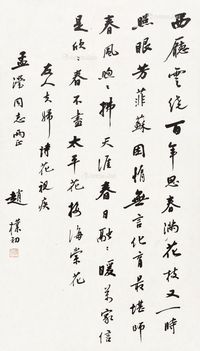 西廳雲從百年思春滿花枝又一時
照眼芳菲蘇困惰無言化育最堪師
春風吻〻拂天涯春日融〻暖万家信
是欣〻春不盡太平花接海棠花
友人夫婦詩花視疾
孟瀅同志兩正
趙樸初